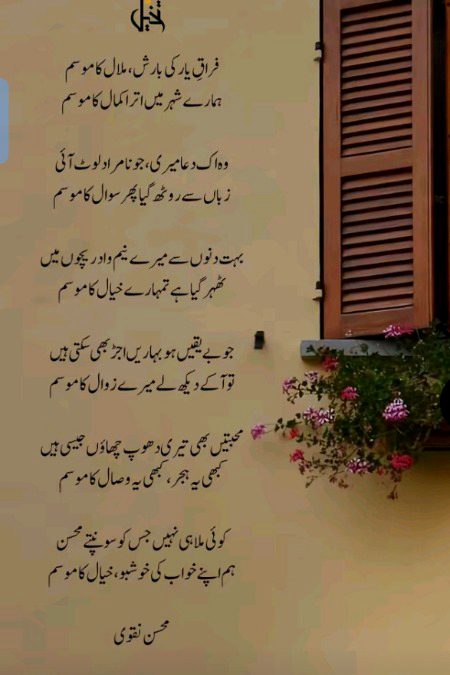 تخیل
فراقِ یار کی بارش، ملال کا موسم
ہمارے شہر میں اترا کمال کا موسم
وہ اک دعا میری، جو نامراد لوٹ آئی
زباں سے روٹھ گیا پھر سوال کا موسم
بہت دنوں سے میرے نیم وا دریچوں میں
ٹھہر گیا ہے تمہارے خیال کا موسم
جو بے یقیں ہو بہاریں اجڑ بھی سکتی ہیں
تو آ کے دیکھ لے میرے زوال کا موسم
محبتیں بھی تیری دھوپ چھاؤں جیسی ہیں
کبھی یہ ہجر، کبھی یہ وصال کا موسم
کوئی ملا ہی نہیں جس کو سونپتے محسن
ہم اپنے خواب کی خوشبو، خیال کا موسم
محسن نقوی